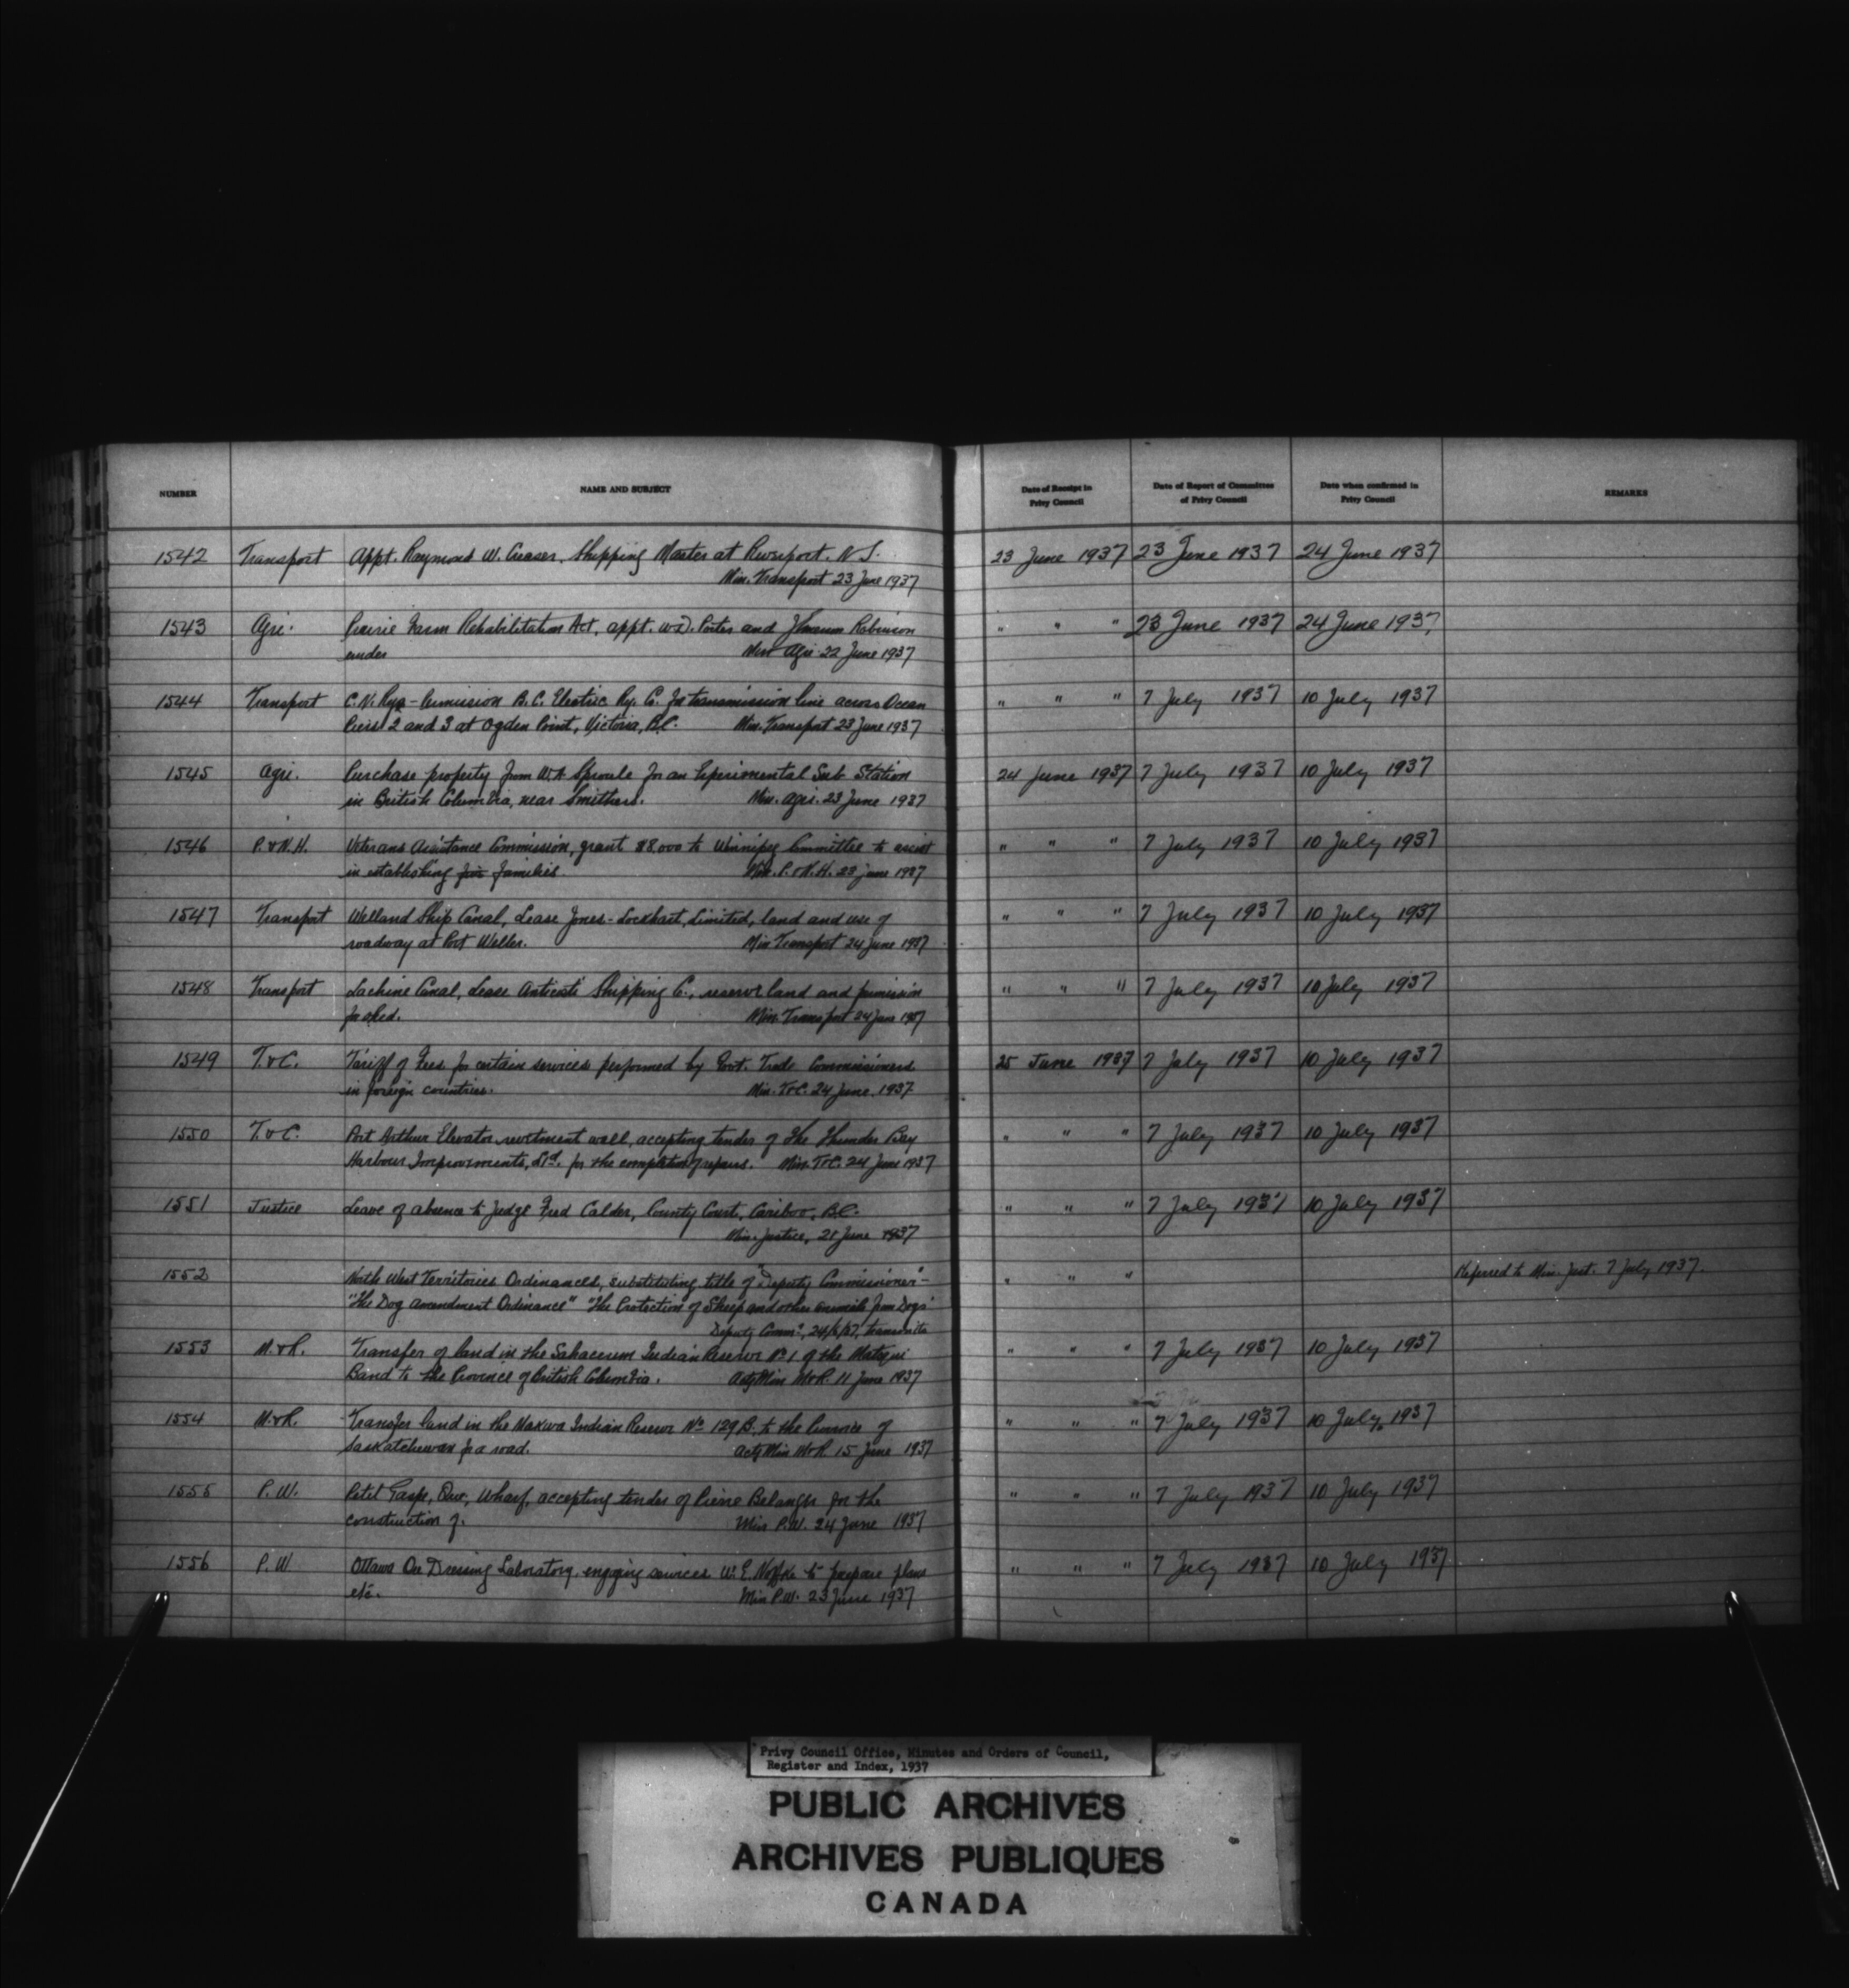 NUMBER NAME AND SUBJECT Date of Receipt in Privy Council Date of Report of Committee of Privy Council Date when confirmed in Privy Council REMARKS
1542 Transport Appt. Raymond W. Creaser, Shipping Master at Riverport, N.S. 23 June 1937 23 June 1937 24 June 1937
Min. Transport 23 June 1937
1543 Agri. Prairie Farm Rehabilitation Act, appt. W.D. Porter and Robinson " " " 23 June 1937 24 June 1937
under Min Agri 22 June 1937
1544 Transport C.N. Rys - Permission B.C. Electric Ry. Co. for transmission line across Ocean " " " 7 July 1937 10 July 1937
Piers 2 and 3 at Ogden Point, Victoria, B.C. Min. Transport 23 June 1937
1545 Agri. Purchase property from W.A. Sproule for an Experimental Sub Station 24 June 1937 7 July 1937 10 July 1937
in British Columbia, near Smithers. Min. Agri. 23 June 1937
1546 P. & N.H. Veterans Assistance Commission, grant $8,000 to Winnipeg Committee to assist " " " 7 July 1937 10 July 1937
in establishing families Min. P. & N.H. 23 June 1937
1547 Transport Welland Ship Canal, Lease Jones-Lockhart, Limited, land and use of " " " 7 July 1937 10 July 1937
roadway at Port Weller. Min Transport 24 June 1937
1548 Transport Lachine Canal, Lease Anticosti Shipping Co., reserve land and permission " " " 7 July 1937 10 July 1937
for shed. Min. Transport 24 June 1937
1549 T. & C. Tariff of Fees for certain services performed by Govt. Trade Commissioners 25 June 1937 7 July 1937 10 July 1937
in foreign countries. Min. T&C. 24 June. 1937
1550 T. & C. Port Arthur Elevator revetment wall, accepting tender of The Thunder Bay " " " 7 July 1937 10 July 1937
Harbour Improvements, Ltd. for the completion of repairs. Min. T&C. 24 June 1937
1551 Justice Leave of absence to Judge Fred Calder, County Court, Cariboo, B.C. " " " 7 July 1937 10 July 1937
Min. Justice, 21 June 1937
1552 North West Territories Ordinances, substituting title of "Deputy Commissioner" - " " " Referred to Min. Just. 7 July 1937.
"The Dog amendment Ordinance" "The Protection of Sheep and other animals from Dogs"
Deputy Commr, 24/6/37, transmits
1553 M. & R. Transfer of land in the Sahacum Indian Reserve No 1 of the Matsqui " " " 7 July 1937 10 July 1937
Band to the Province of British Columbia. Actg Min M&R. 11 June 1937
1554 M. & R. Transfer land in the Makwa Indian Reserve No 129 B. to the Province of " " " 7 July 1937 10 July 1937
Saskatchewan for a road. Actg Min M&R. 15 June 1937
1555 P.W. Petit Gaspe, Que, Wharf, accepting tender of Pierre Belanger for the " " " 7 July 1937 10 July 1937
construction of. Min P.W. 24 June 1937
1556 P.W Ottawa Ore Dressing Laboratory, engaging services W.E. Noffke to prepare plans " " " 7 July 1937 10 July 1937
etc. Min P.W. 23 June 1937
Privy Council Office, Minutes and Orders of Council,
Register and Index, 1937
PUBLIC ARCHIVES
ARCHIVES PUBLIQUES
CANADA